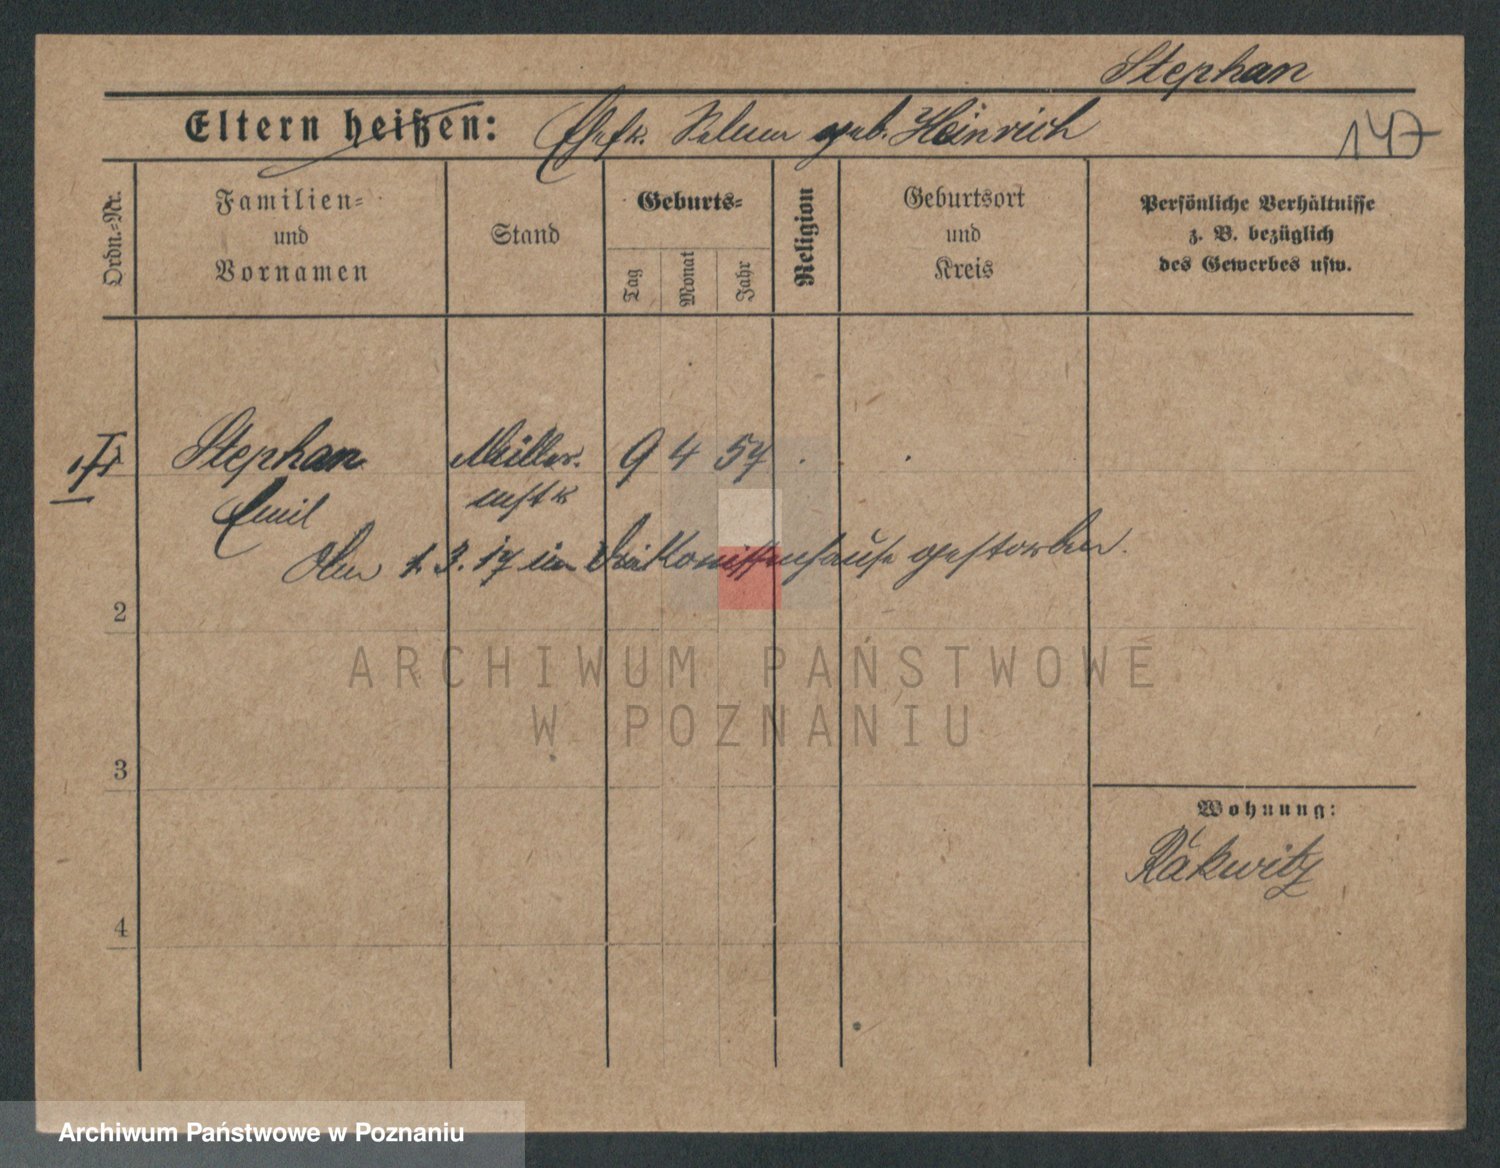 Stephan
Eltern heißen: Ehefr. Selma geb. Heinrich
147
Ordn.-Nr.
Familien-
und
Vornamen
Stand
Geburts-
Tag
Monat
Jahr
Religion
Geburtsort
und
Kreis
Persönliche Verhältnisse
z. B. bezüglich
des Gewerbes usw.
Stephan
Müller-
mstr
9 4 57
Emil
Am 1.3.17 im Diakonissenhause gestorben.
2
ARCHIWUM PAŃSTWOWE
W POZNANIU
3
Wohnung:
Rakwitz
4
Archiwum Państwowe w Poznaniu